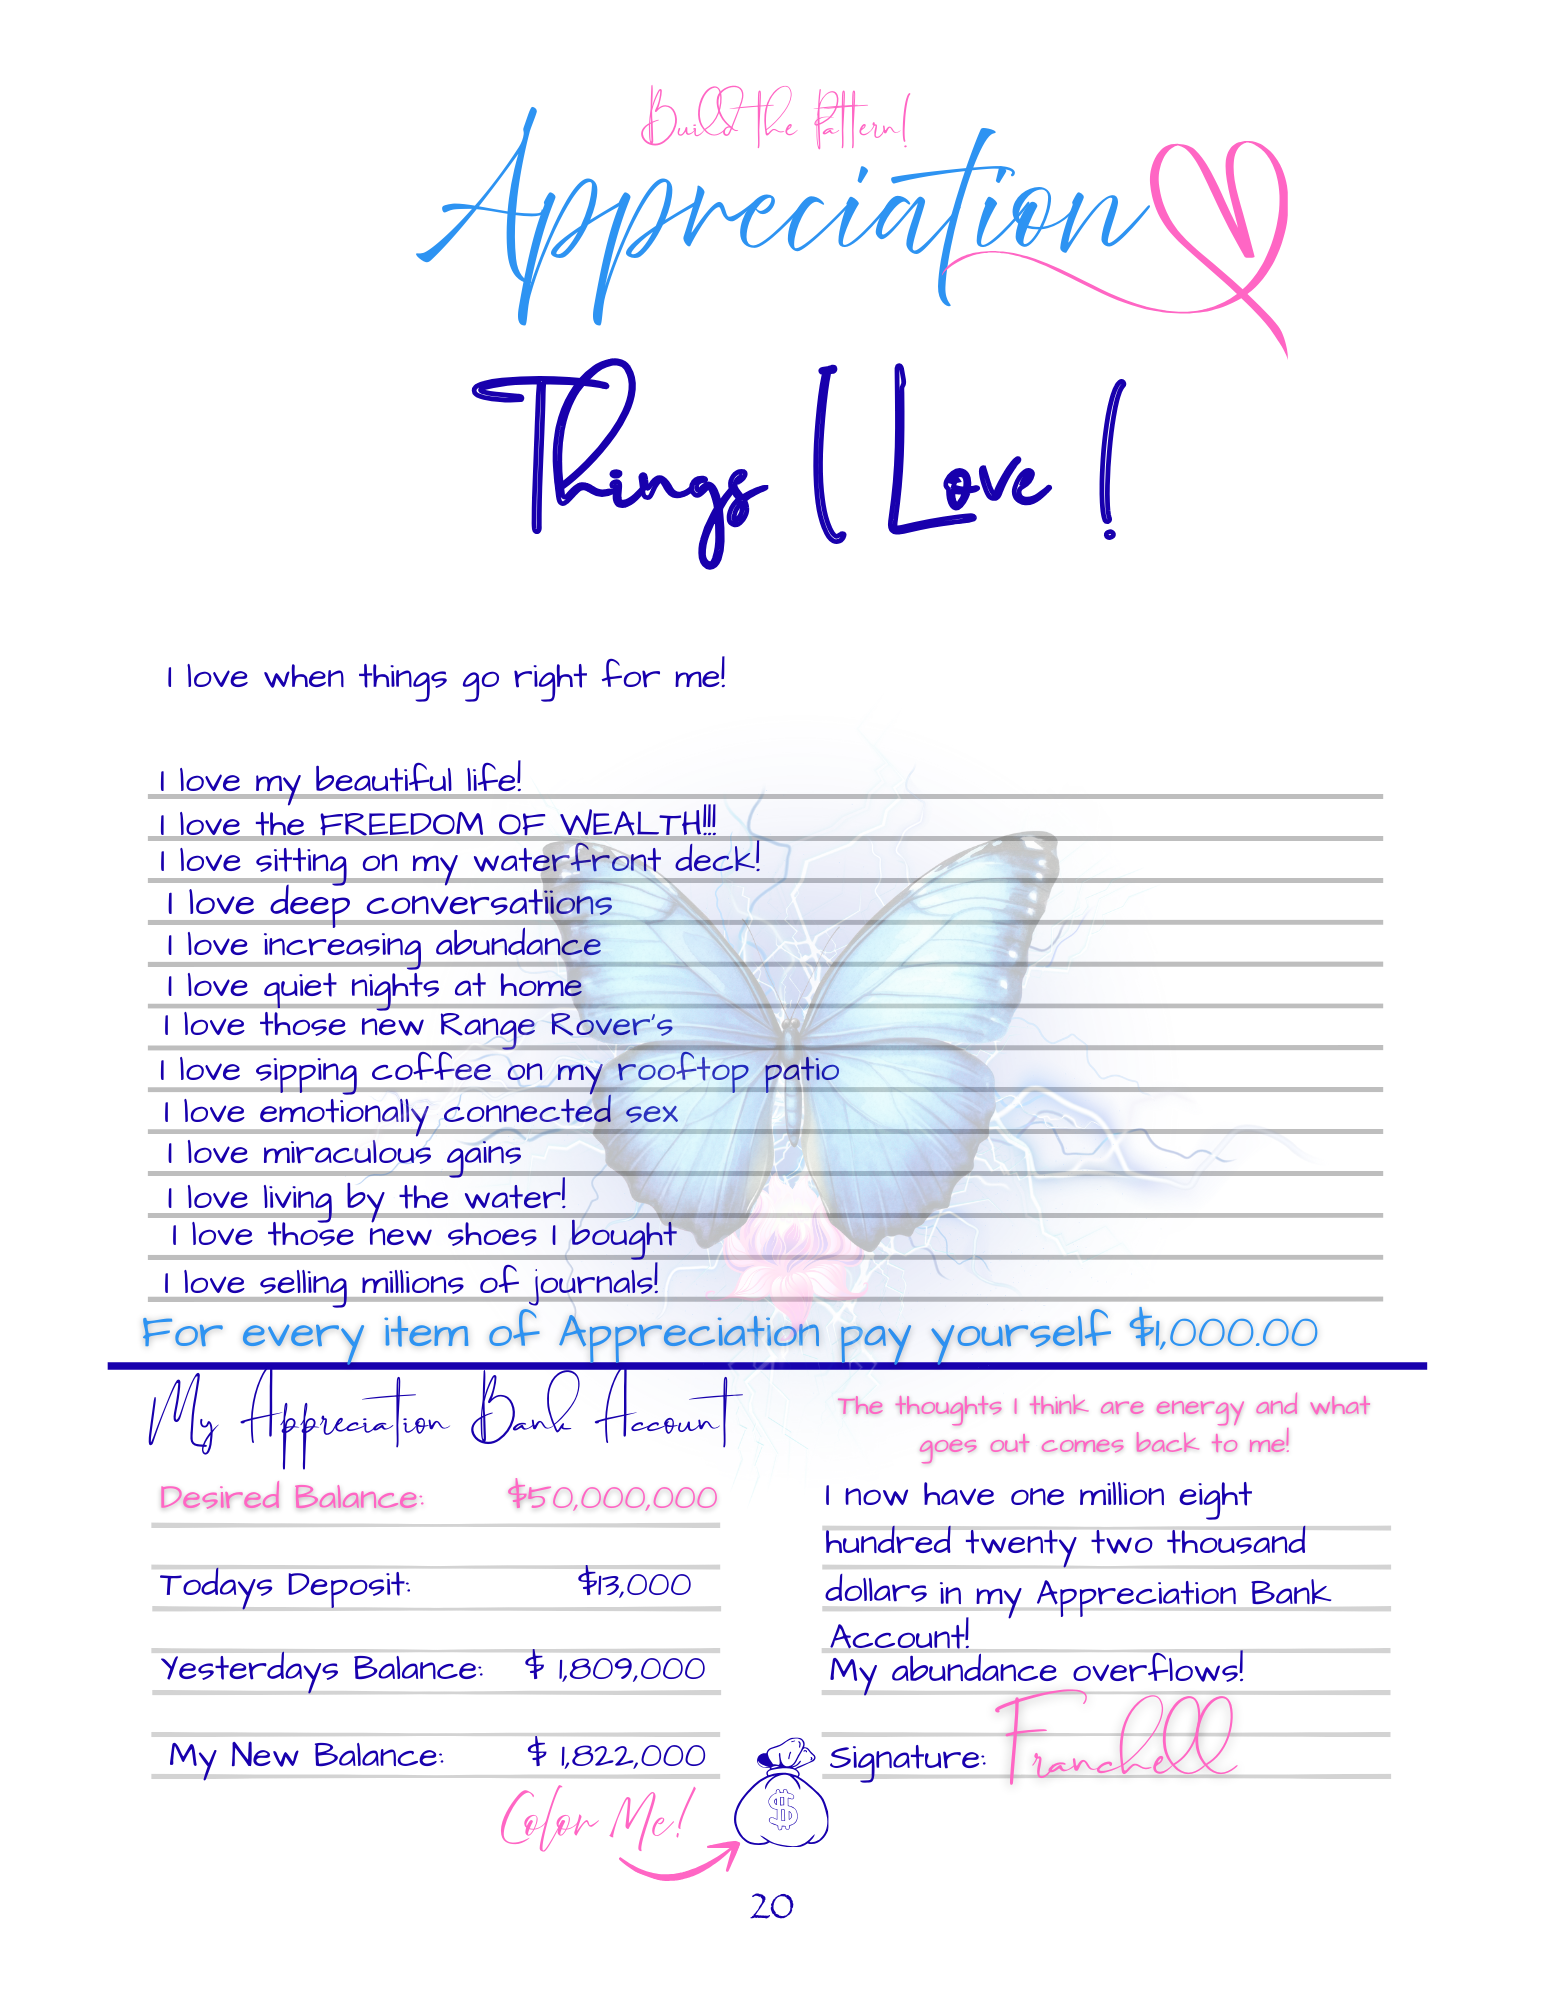 Build the Pattern!
Appreciation
Things I Love !
I love when things go right for me!
I love my beautiful life!
I love the FREEDOM OF WEALTH!!!
I love sitting on my waterfront deck!
I love deep conversatiions
I love increasing abundance
I love quiet nights at home
I love those new Range Rover's
I love sipping coffee on my rooftop patio
I love emotionally connected sex
I love miraculous gains
I love living by the water!
I love those new shoes I bought
I love selling millions of journals!
For every item of Appreciation pay yourself $1,000.00
My Appreciation Bank Account
Desired Balance: $50,000,000
Todays Deposit: $13,000
Yesterdays Balance: $ 1,809,000
My New Balance: $ 1,822,000
The thoughts I think are energy and what
goes out comes back to me!
I now have one million eight
hundred twenty two thousand
dollars in my Appreciation Bank
Account!
My abundance overflows!
Signature: Franchell
Color Me!
$
20